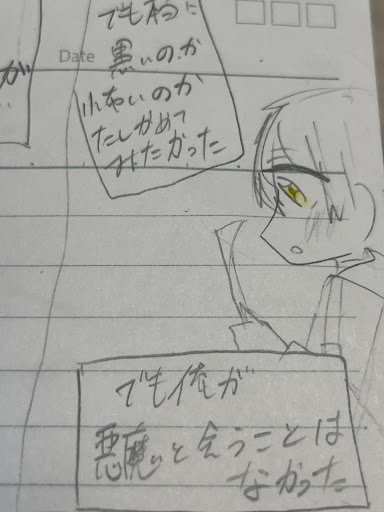 が
Date
でも本当に
悪いのか
怖いのか
たしかめて
みたかった
でも俺が
悪魔と会うことは
なかった